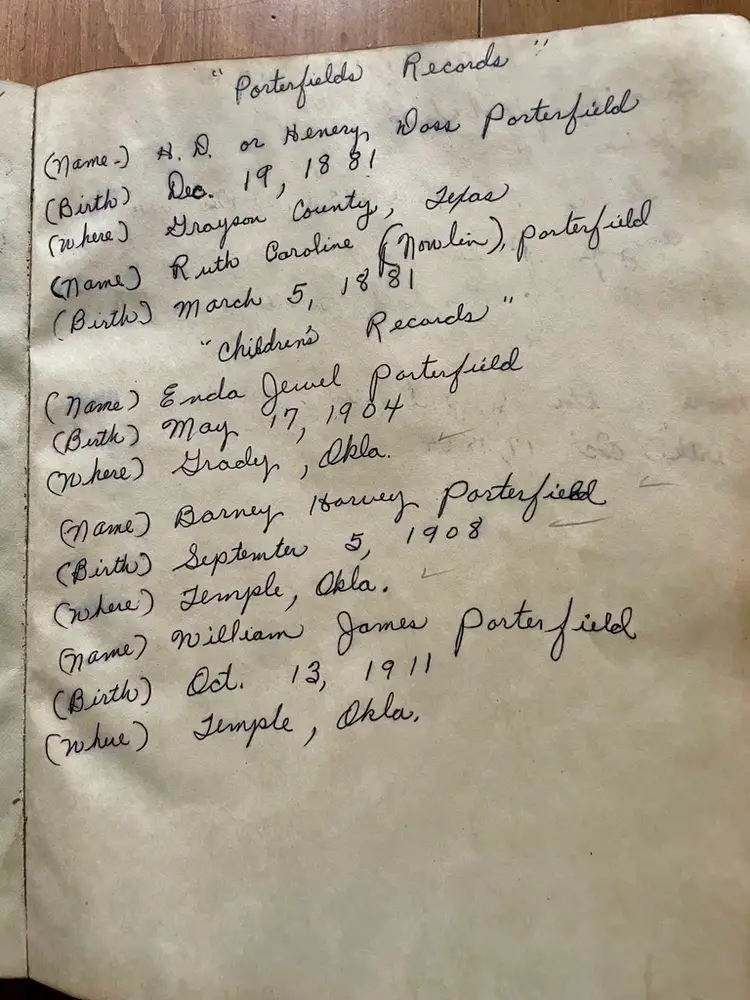 "Porterfields Records"
(Name-) H. D. or Henery Doss Porterfield
(Birth) Dec. 19, 1881
(Where) Grayson County, Texas
(Name) Ruth Caroline (Nowlin), Porterfield
(Birth) March 5, 1881
"Children's Records"
(Name) Enda Jewel Porterfield
(Birth) May 17, 1904
(Where) Grady, Okla.
(Name) Barney Harvey Porterfield
(Birth) Septemter 5, 1908
(Where) Temple, Okla.
(Name) William James Porterfield
(Birth) Oct. 13, 1911
(Where) Temple, Okla.